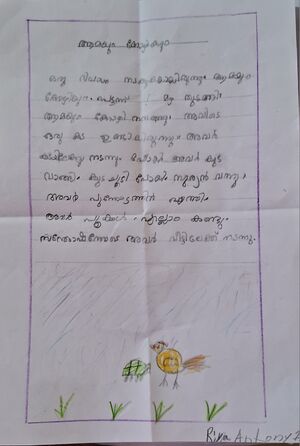 ആമയും കോഴിയും
ഒരു ദിവസം നടക്കുകയായിരുന്നു ആമയും
കോഴിയും. പെട്ടന്ന് മഴ തുടങ്ങി.
ആമയും കോഴി നനഞ്ഞു. അവിടെ
ഒരു കട ഉണ്ടായിരുന്നു. അവർ
കടയിലേക്കു നടന്നു. പോയി അവർ കുട
വാങ്ങി. കുട ചൂടി പോയി സൂര്യൻ വന്നു.
അവർ പൂന്തോട്ടത്തിൽ എത്തി.
അവർ പൂക്കൾ എല്ലാം കണ്ടു.
സന്തോഷത്തോടെ അവർ വീട്ടിലേക്ക് നടന്നു.
Riya Antony